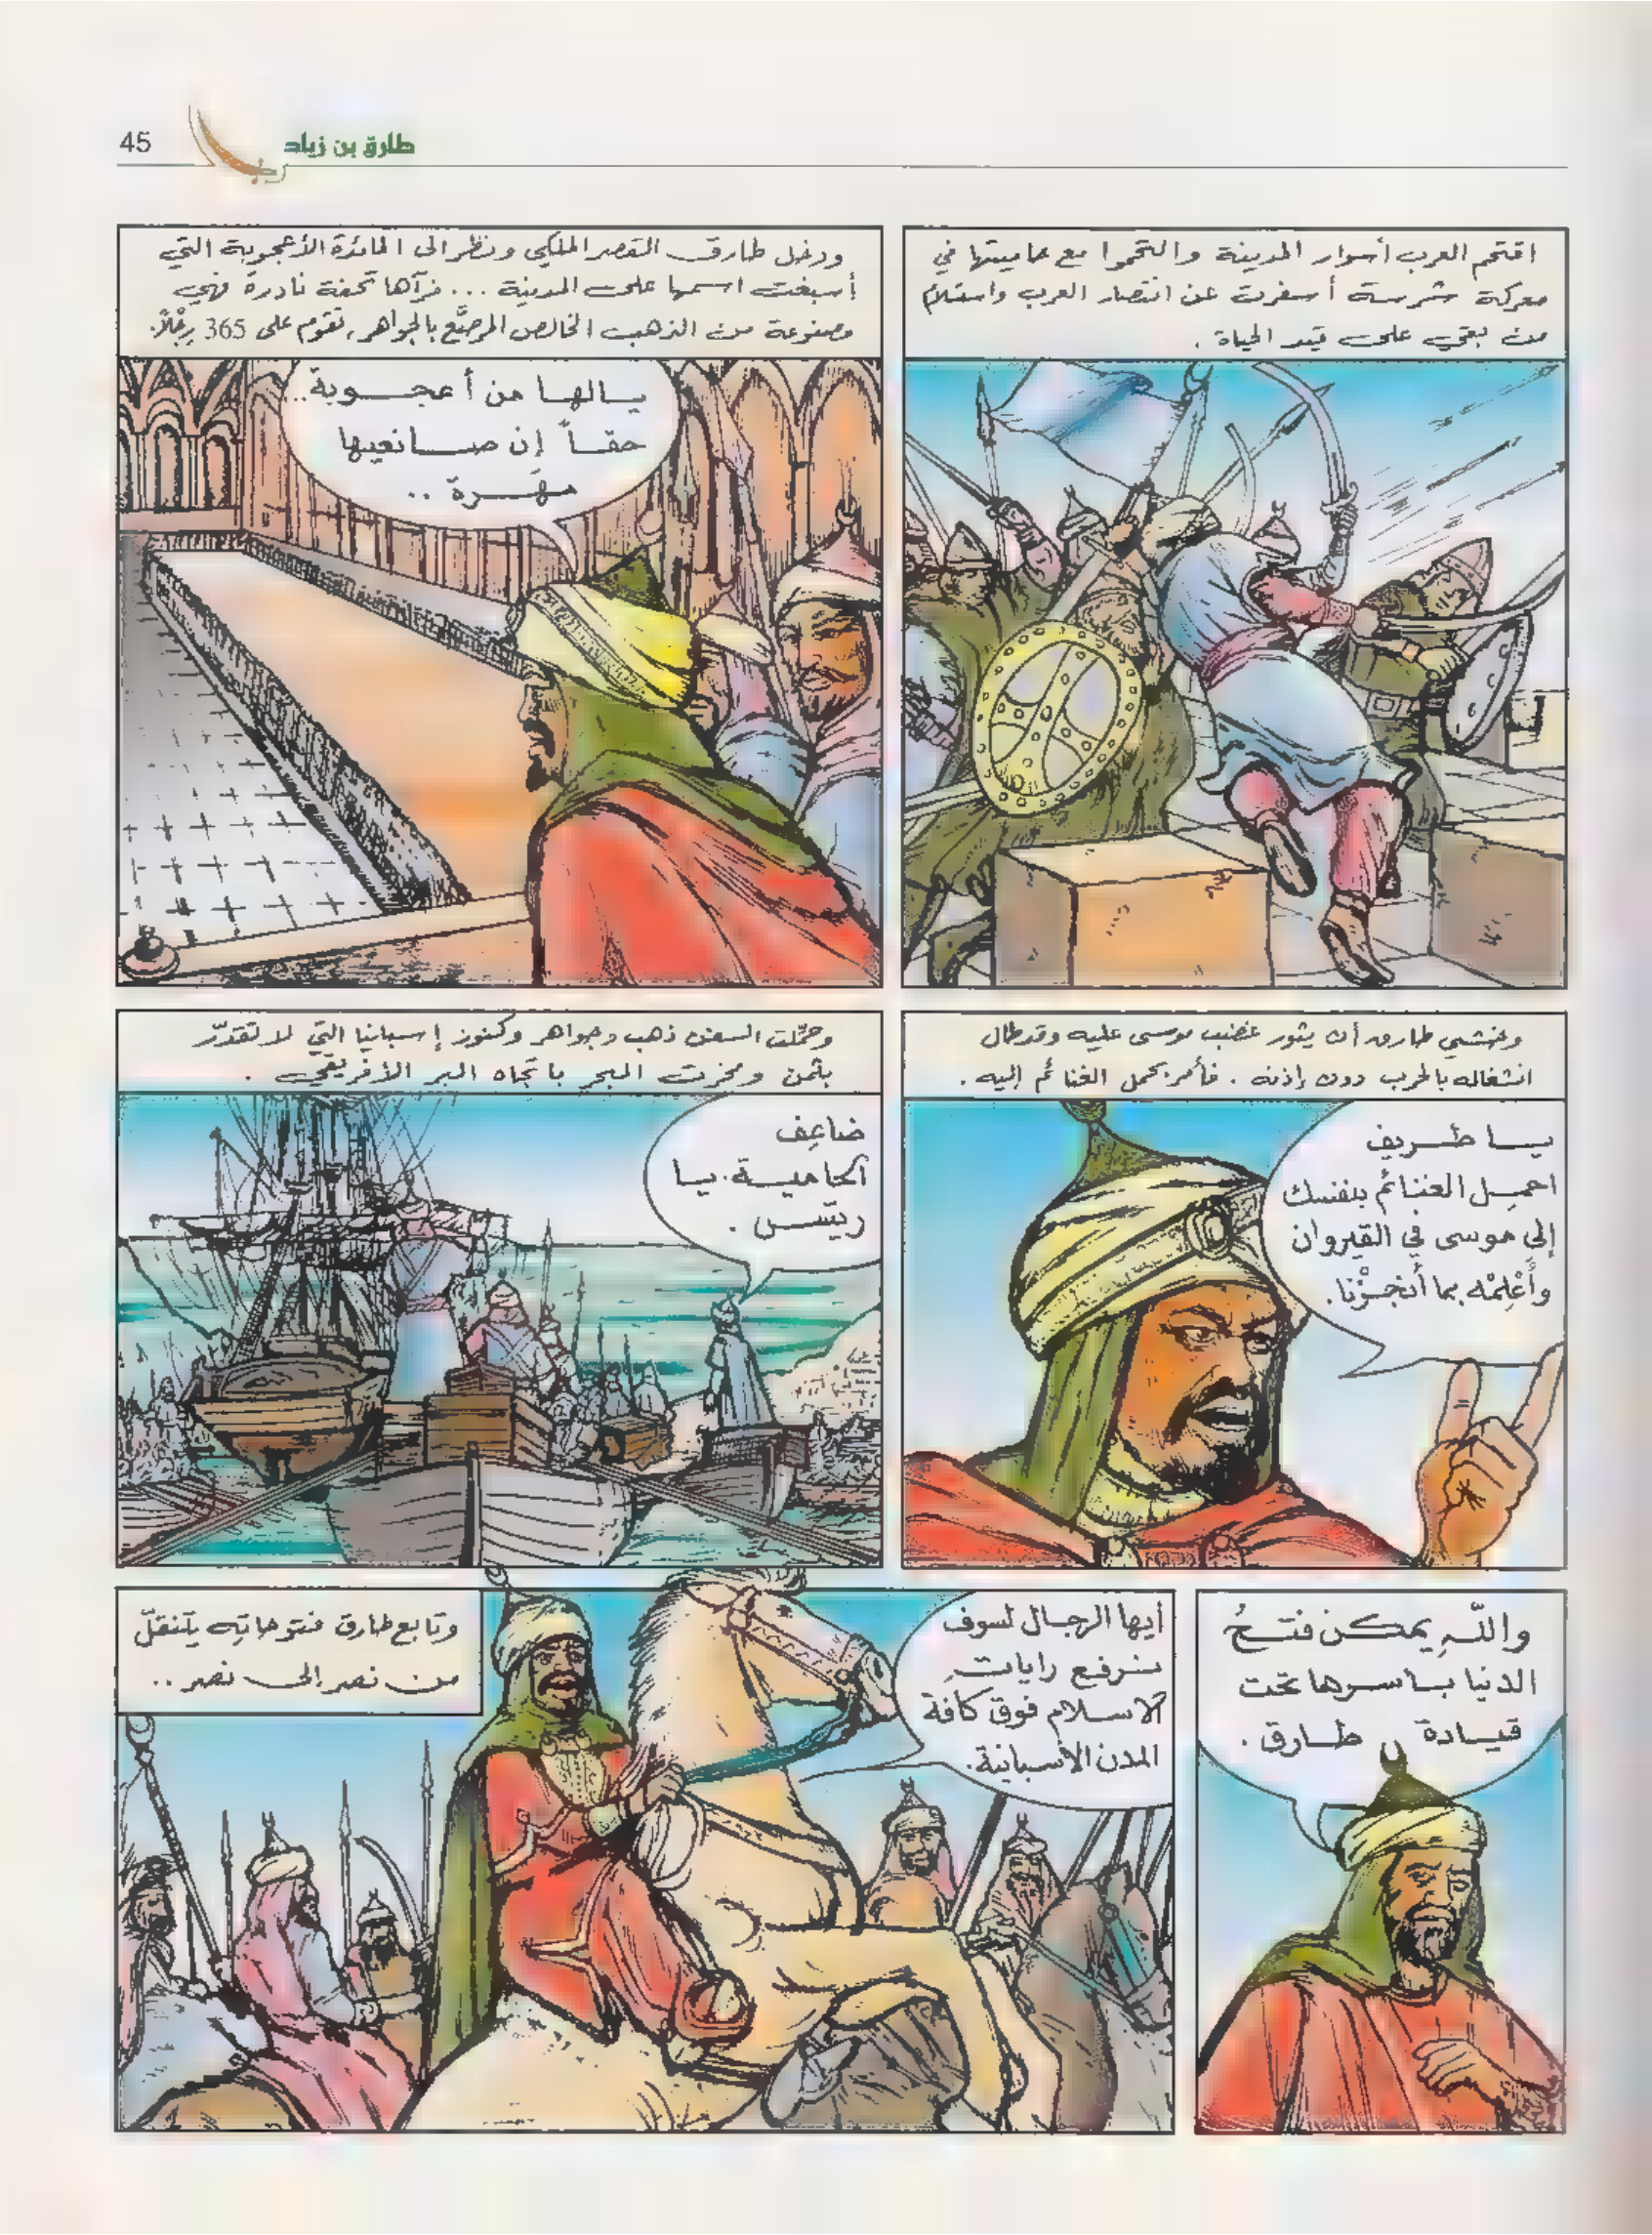 45
طارق بن زياد
اقتحم العرب أسوار المدينة والتحموا مع حاميتها في
معركة شرسة أسفرت عن انتصار العرب واستلام
من بقي على قيد الحياة .
ودخل طارق القصر الملكي ونظر الى المائدة الأعجوبة التي
أسبغت اسمها على المدينة ... فرآها تحفة نادرة فهي
مصنوعة من الذهب الخالص المرصّع بالجواهر، تقوم على 365 رِجْلاً.
يالها من أعجوبة..
حقاً إن صانعيها
مهَرة ..
وخشي طارق أن يثور غضب موسى عليه وقد طال
انشغاله بالحرب دون إذنه . فأمر بحمل الغنائم إليه .
يا طريف
احمِل الغنائم بنفسك
إلى موسى في القيروان
وأَعْلِمْه بما أنجزْنا.
وحمّلت السفن ذهب وجواهر وكنوز إسبانيا التي لا تقدّر
بثمن ومخرت البحر باتجاه البر الأفريقي .
ضاعِف
الحامية. يا
ريّس .
واللّهِ يمكن فتحُ
الدنيا بأسرها تحت
قيادة طارق .
أيها الرجال لسوف
نرفع راياتِ
الاسلام فوق كافة
المدن الأسبانية.
وتابع طارق فتوحاتِه يتنقلّ
من نصر الى نصر ..